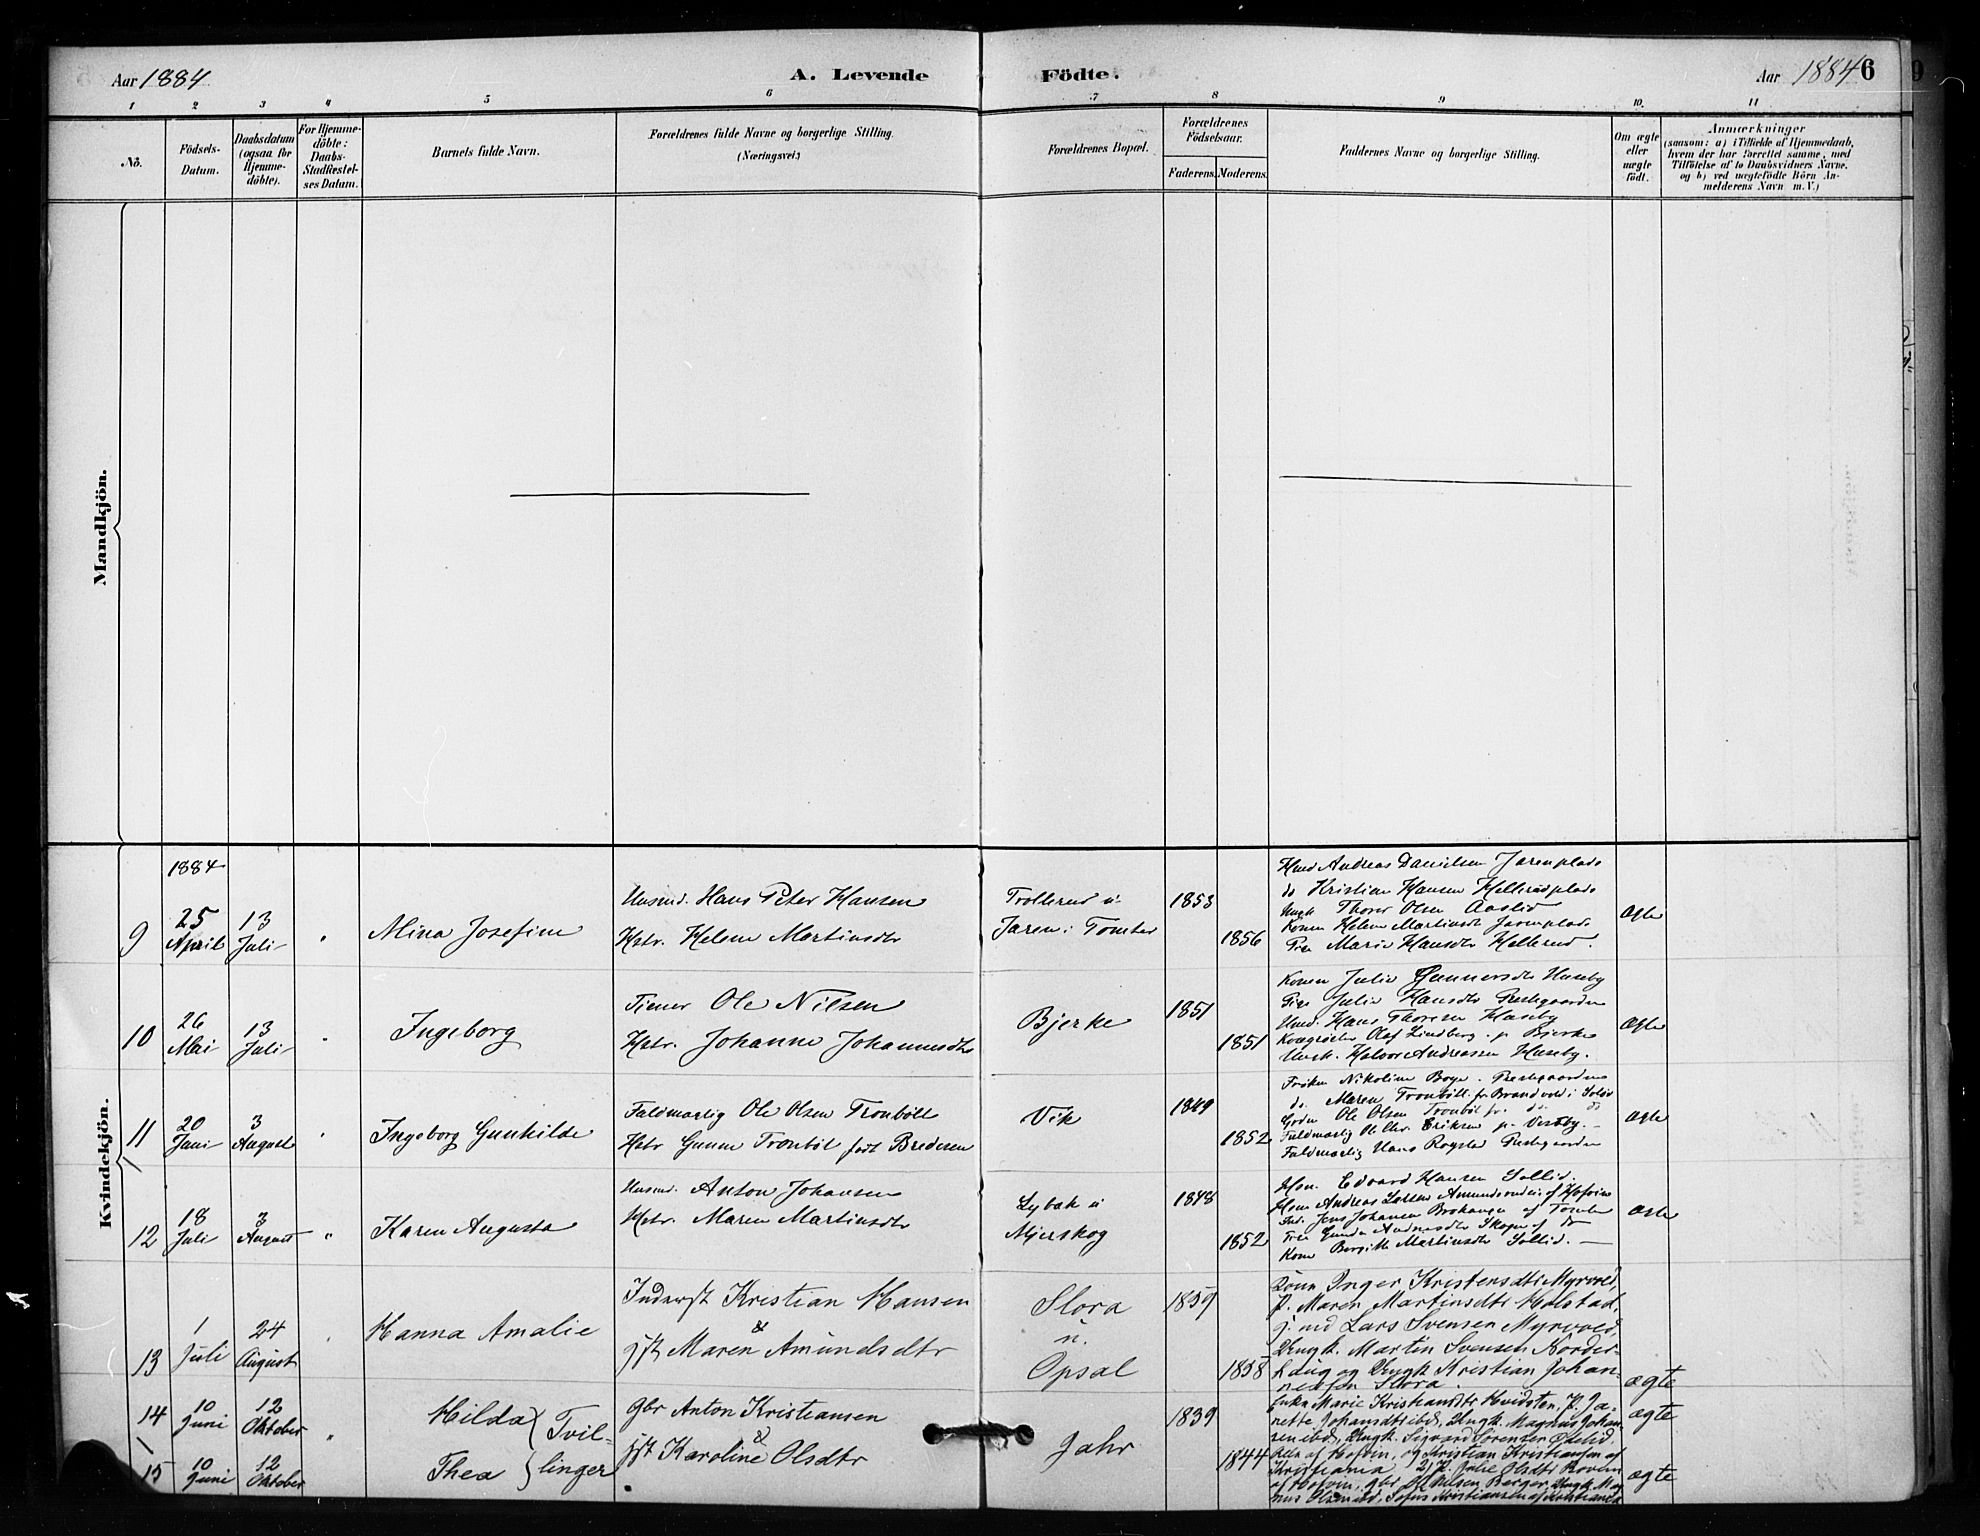 Aar 1884
A. Levende Födte.
Aar 1884 6
1 2 3 4 5 6 7 8 9 10 11
Nô.
Födsels-
Datum.
Daabsdatum
(ogsaa for
Hjemme-
döbte).
For Hjemme-
döbte:
Daabs-
Stadfæstel-
ses Datum.
Barnets fulde Navn.
Forældrenes fulde Navne og borgerlige Stilling.
(Næringsvei.)
Forældrenes Bopæl.
Forældrenes
Födselsaar.
Faderens. Moderens.
Faddernes Navne og borgerlige Stilling.
Om ægte
eller
uægte
födt.
Anmærkninger
(saasom: a) i Tilfælde af Hjemmedaab,
hvem der har forrettet samme, med
Tilföielse af to Daabsvidners Navne.
og b) ved uægtefödte Börn An-
melderens Navn m. V.)
Mandkjön.
Kvindekjön.
1884
9
25 April
13 Juli
"
Mina Josefine
Husmd. Hans Peter Hansen
Hstr. Helene Martinsdtr
Trollerud u.
Jaren i Tomter
1853
1856
Hmd Andreas Danielsen Jarenplads
do Kristian Hansen Hellerudplads
Ungk Thorer Olsen Aaslid
Konen Helene Martinsdtr Jarenplads
Pige Marie Hansdtr Hellerud.
Ægte
10
26 Mai
13 Juli
"
Ingeborg
Tjener Ole Nilsen
Hstr. Johanne Johannesdtr
Bjerke
1851
1851
Konen Julie Gunnersdtr Huseby
Pige Julie Hansdtr Prestegaarden
Hmd. Hans Thoresen Huseby
Kvægrögter Olaf Lindberg p. Bjerke
Ungk. Halvor Andreassen Huseby.
Ægte
11
20 Juni
3 August
"
Ingeborg Gunhilde
Fuldmægtig Ole Olsen Tronböll
Hstr Gunne Tronböl født Bredesen
Vik
1849
1852
Frøken Nikoline Boye. Prestegaarden
do. Maren Tronböll fr Brandvold i Solör
Gbr Ole Olsen Tronböl fr. do do
Fuldmægtig Ole Chr. Eriksen p. Vestby.
Fuldmægtig Hans Rogstad Prestegaarden
Ægte
12
18 Juli
3 August
"
Karen Augusta
Husmd. Anton Johansen
Hstr. Maren Martinsdtr
Lybæk u
Mjerskog
1848
1852
Hsm. Edvard Hansen Sollid.
Hsm Andreas Larsen Amundsrudeie af Hofvin
Ind. Jens Johansen Brohaugen af Tomter
Pige Gunda Andreasdtr Skogen af do
Kone Bergitte Martinsdtr Sollid.
Ægte
13
1 Juli
24 August
"
Hanna Amalie
Inderst Kristian Hansen
&
jft Maren Amundsdtr
Slora
u.
Opsal
1859
1858
Kone Inger Kristensdtr Myrvold,
P. Maren Martinsdtr Holstad,
g. md Lars Svensen Myrvold,
Ungk. Martin Svensen Norder-
haug og Ungk Kristian Johan-
nessen Slora.
ægte
14
10 Juni
12 Oktober
"
Hilda } Tvil-
15
10 Juni
12 Oktober
Thea } linger
Gbr Anton Kristiansen
&
jft Karoline Olsdtr
Jahr
1839
1844
Enke Marie Kristiansdtr Hvidsten, P. Ja-
nette Johansdtr ibd, Ungk. Magnus Johan-
sen ibd, Ungk. Sigvard Sörensen Opelid
alle af Hofvin, og Kristian Kristiansen af
Kristiania 2) P. Julie Olsdtr Roven
af Hofvin, gbr Ole Nilsen Berger, Ungk. Mag-
nus Olsen ibd, Sofus Kristiansen af Kristiania
ægte
ægte